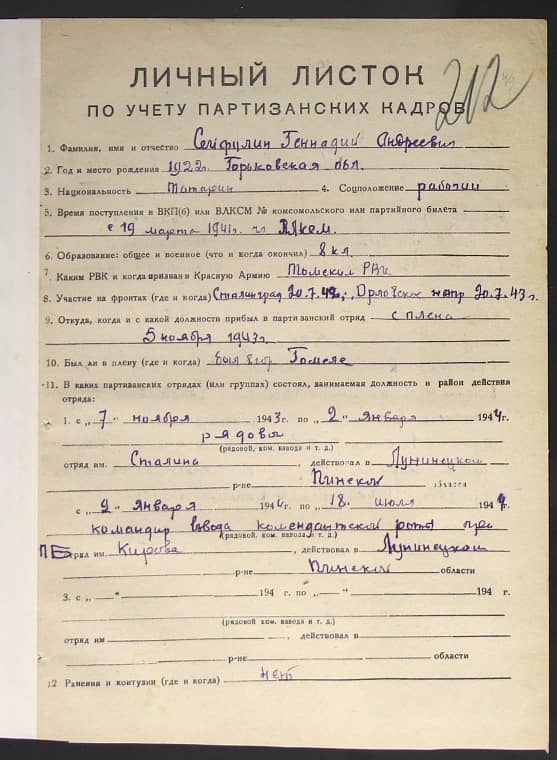 212
ЛИЧНЫЙ ЛИСТОК
ПО УЧЕТУ ПАРТИЗАНСКИХ КАДРОВ
1. Фамилия, имя и отчество Сейфулин Геннадий Андреевич
2. Год и место рождения 1922г. Горьковская обл.
3. Национальность Татарин 4. Соцположение рабочий
5. Время поступления в ВКП(б) или ВЛКСМ № комсомольского или партийного билета
с 19 марта 1941г. чл
6. Образование: общее и военное (что и когда окончил) 8 кл.
7. Каким РВК и когда призван в Красную Армию Томским РВК
8. Участие на фронтах (где и когда) Сталинград 20.7.42г., Орловск напр 20.7.43г.
9. Откуда, когда и с какой должности прибыл в партизанский отряд с плена
5 ноября 1943г.
10. Был ли в плену (где и когда) был Гомеле
11. В каких партизанских отрядах (или группах) состоял, занимаемая должность и район действия
отряда:
1. с „7" ноября 1943г. по „2" января 1944г.
рядовы
(рядовой, ком. взвода и т. д.)
отряд им. Сталина, действовал в Лунинецком
р-не Пинской области
с „2" января 1944г. по „18. июля 1944г.
командир взвода комендантской роты при
(рядовой, ком. взвода и т. д.)
ПБ отряд им. Кирова, действовал в Лунинецком
р-не Пинской области
3. с „—" 194 г. по „—" 194 г.
(рядовой, ком. взвода и т. д.)
отряд им —, действовал в
р-не области
12. Ранения и контузии (где и когда) нет